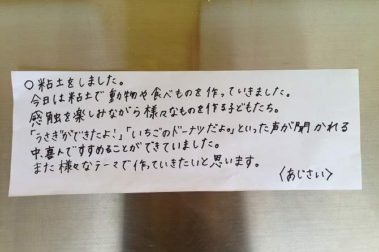 ○粘土をしました。
今日は粘土で動物や食べものを作っていきました。
感触を楽しみながら様々なものを作る子どもたち。
「うさぎができたよ!」「いちごのドーナツだよ。」といった声が聞かれる
中、喜んですすめることができていました。
また様々なテーマで作っていきたいと思います。
〈あじさい〉